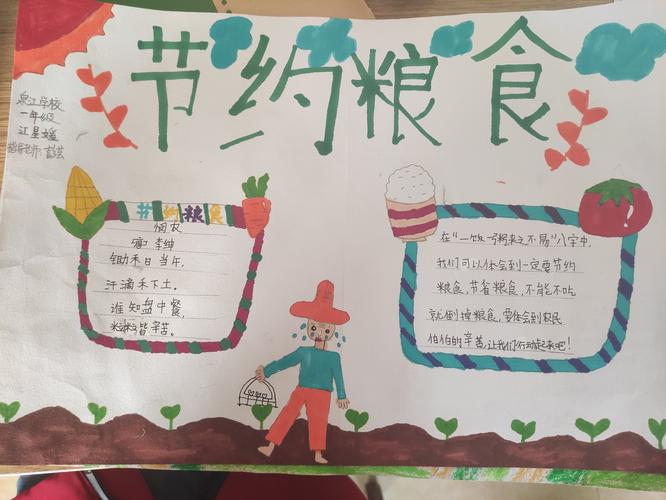 节约粮食
泉江学校
一年级
江星媛
指导老师:
节约粮食
悯农
李绅
锄禾日当午,
汗滴禾下土。
谁知盘中餐,
粒粒皆辛苦。
在"一饭一粥来之不易"八字中,
我们可以体会到一定要节约
粮食,节省粮食,不能不吃
就倒掉粮食,要体会到农民
伯伯的辛苦,让我们行动起来吧!